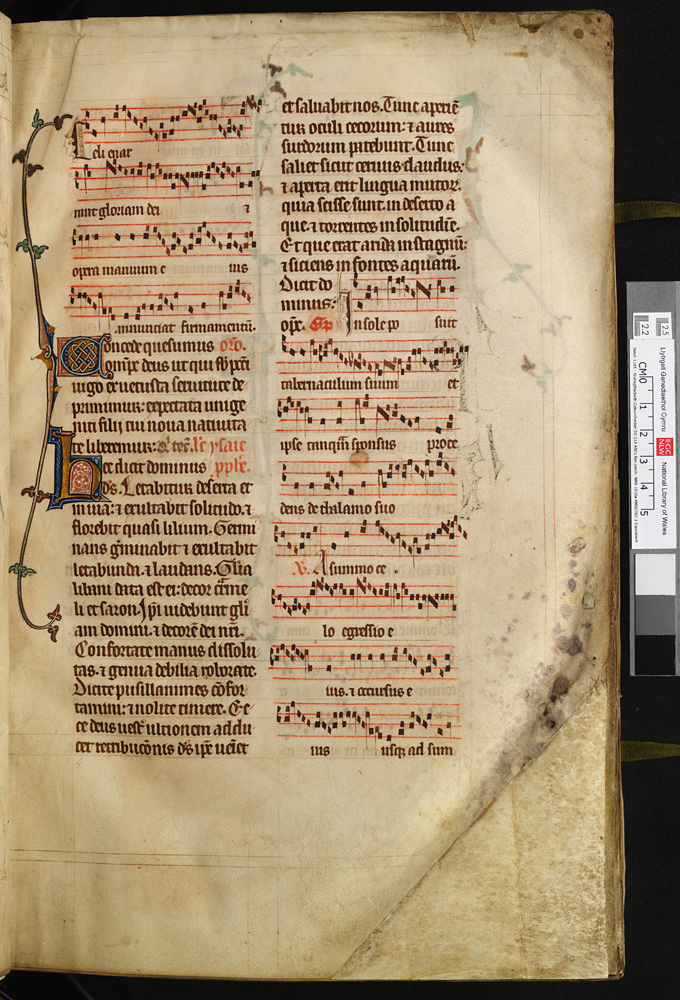 Celi enar
rant gloriam dei et
opera manuum e ius
annunciat firmamentū.
Concede quesumus oro.
omp̄s deus ut qui sb̄ pcti
iugo ex uetusta seruitute de
primimur: expectata unige
niti filii tui noua natiuita
te liberemur: Le ysaie
Hec dicit dominus pphe.
d̄s. Letabitur deserta et
inuia: ⁊ exultabit solitudo. ⁊
florebit quasi lilium. Germi
nans g̃minabit ⁊ exultabit
letabunda. ⁊ laudans. Glīa
libani data est ei: decor c̃me
li et saron. Ipi uidebunt glī
am domini. ⁊ decorē dei nr̄i.
Confortate manus dissolu
tas. ⁊ genua debilia roborate.
Dicite pusillanimes cōfor
tamini: ⁊ nolite timere. Ec
ce deus uest̃ ultionem addu
cet retribucōnis d̄s ip̄e ueīet
et saluabit nos. Tunc aperiē
tur oculi cecorum: ⁊ aures
surdorum patebunt. Tunc
saliet sicut ceruus claudus:
⁊ aperta erit lingua mutoꝝ.
quia scisse sunt. in deserto a
que. ⁊ torrentes in solitudīe.
Et que erat arida in stagnū:
⁊ siciens in fontes aquarū.
Dicit do
minus:
op̄c. Gr̄ In sole po suit
tabernaculum suum et
ipse tanq̄m sponsus proce
dens de thalamo suo
V. A summo ce .
lo egressio e
ius. ⁊ occursus e
ius usqꝫ ad sum
Llyfrgell Genedlaethol Cymru
National Library of Wales
LLGC
NLW
CM 0 1 2 3 4 5
2.2
2.5